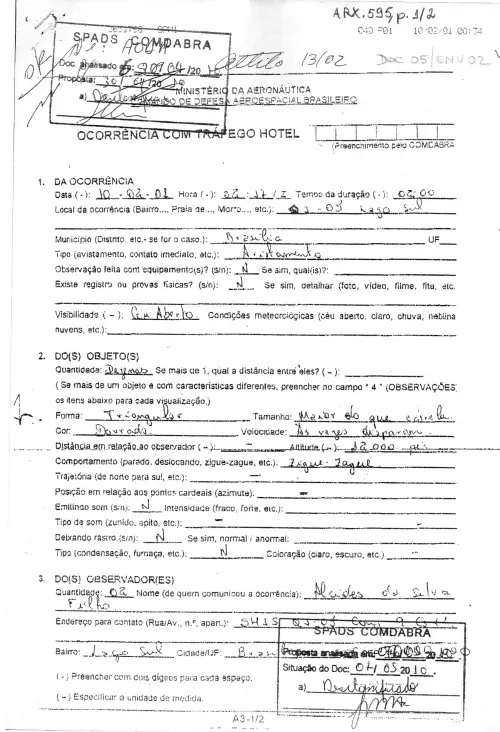 ARX.595, p. 1/2
10/02/01 00:34
SPADS COMDABRA
Doc analisado
13/02
DOC 05/ENV 02
Proposta:
a)
MINISTÉRIO DA AERONÁUTICA
COMANDO DE DEFESA AEROESPACIAL BRASILEIRO
OCORRÊNCIA COM TRÁFEGO HOTEL
(Preenchimento pelo COMDABRA
1. DA OCORRÊNCIA
Data (-): 10 - 02 - 01 Hora (-): 02:17/Z Tempo da duração (-): 02:00
Local da ocorrência (Bairro..., Praia de..., Morro..., etc.): - 05 Lago Sul
Município (Distrito, etc.- se for o caso.): Brasília UF
Tipo (avistamento, contato imediato, etc.): Avistamento
Observação feita com equipamento(s)? (s/n): N Se sim, qual(is)?:
Existe registro ou provas físicas? (s/n): N Se sim, detalhar (foto, vídeo, filme, fita, etc.
Visibilidade (~): Céu Aberto Condições meteorológicas (céu aberto, claro, chuva, neblina
nuvens, etc.):
2. DO(S) OBJETO(S)
Quantidade: Dezenas Se mais de 1, qual a distância entre eles? (~):
(Se mais de um objeto e com características diferentes, preencher no campo " 4 " (OBSERVAÇÕES)
os itens abaixo para cada visualização.)
Forma: Triangular Tamanho: Maior do que estrela
Cor: Dourada Velocidade: Às vezes disparam
Distância em relação ao observador (~): - Altitude (~): 12.000
Comportamento (parado, deslocando, zigue-zague, etc.): Zigue-Zague
Trajetória (de norte para sul, etc.): -
Posição em relação aos pontos cardeais (azimute): -
Emitindo som (s/n): N Intensidade (fraco, forte, etc.):
Tipo de som (zunido, apito, etc.): -
Deixando rastro (s/n): N Se sim, normal / anormal:
Tipo (condensação, fumaça, etc.): N Coloração (claro, escuro, etc.) -
3. DO(S) OBSERVADOR(ES)
Quantidade: 02 Nome (de quem comunicou a ocorrência): Alcides da Silva
Filho
Endereço para contato (Rua/Av., n.º, apart.): SHIS
SPADS COMDABRA
Bairro: Lago Sul Cidade/UF:
Proposta analisada em:
Situação do Doc: 04/05 2010.
a) Desclassificado
(-) Preencher com dois dígitos para cada espaço.
(~) Especificar a unidade de medida.
A3-1/2